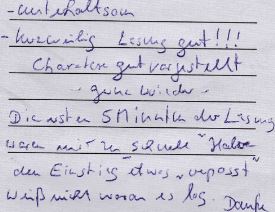 - unterhaltsam
- kurzweilig Lesung gut!!!
Charaktere gut vorgestellt
- gerne wieder -
Die ersten 5 Minuten der Lesung
waren mir zu schnell "Habe
den Einstieg etwas "verpasst"
weiß nicht woran es lag. Danke